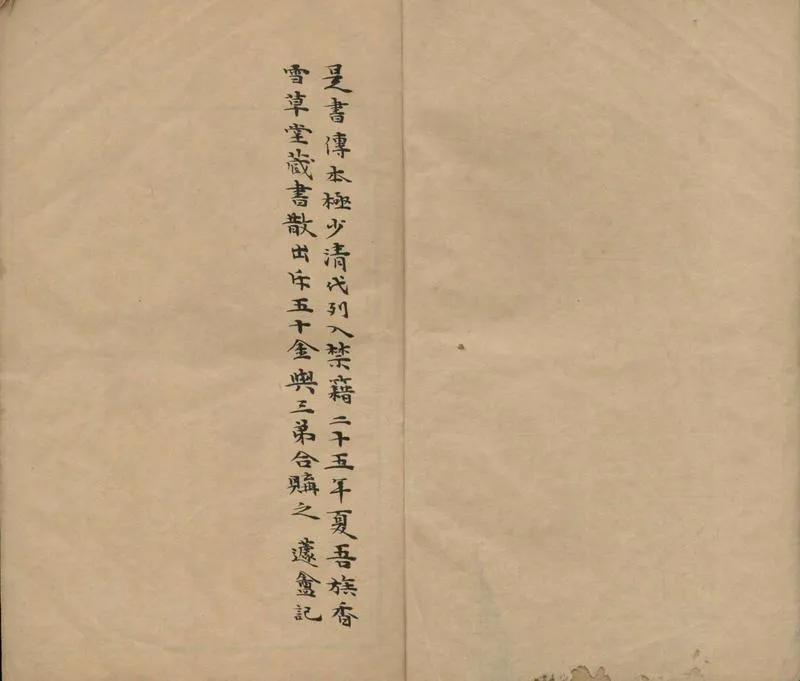 是書傳本極少清代列入禁籍二十五年夏吾族香
雪草堂蔵書散出斥五十金與三弟合購之 蘧盦記